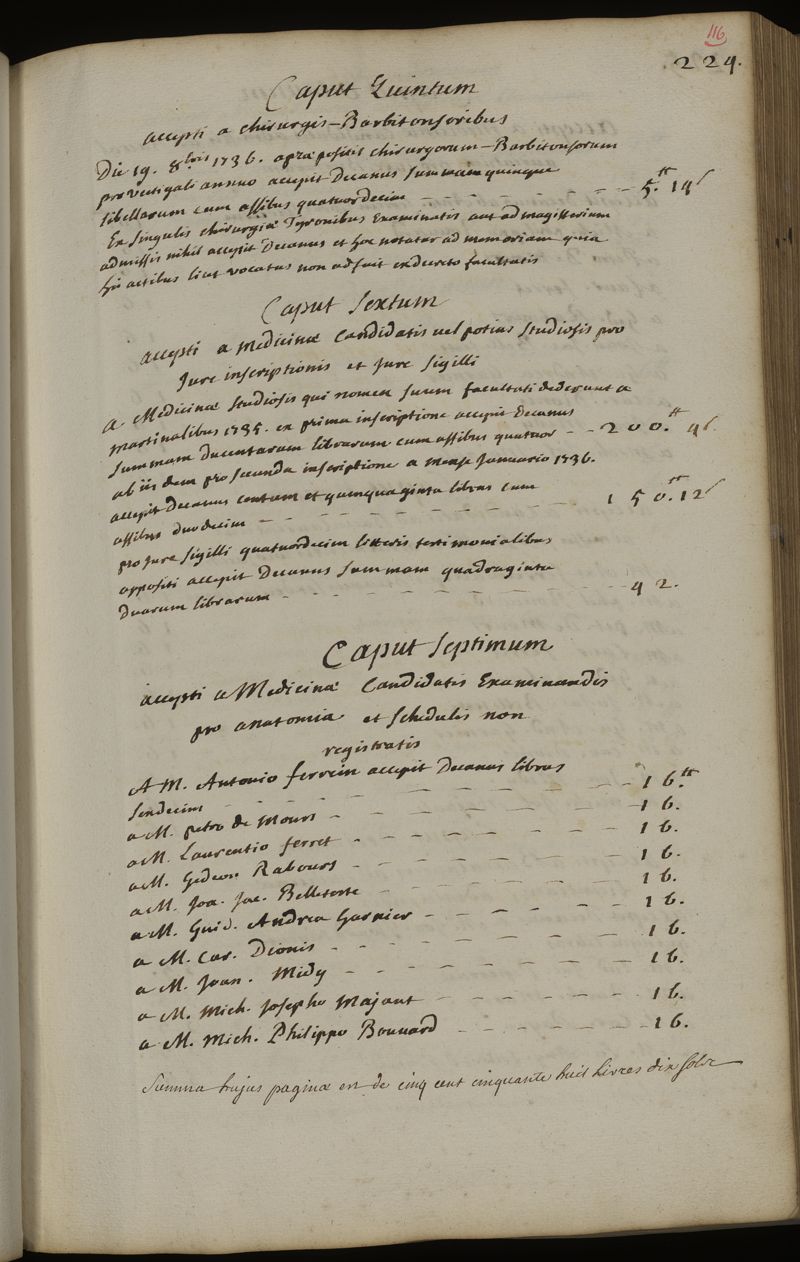 116
224.
Caput Quintum
accepti a chirurgis-Barbitonsoribus
Die 19. 8bris 1736. a præpositis chirurgorum-Barbitonsorum
pro vectigali annuo accepit Decanus summam quinque
libellarum cum assibus quatuordecim - - - - - - - 5.tt 14s
Ex singulis chirurgiæ Tyronibus Examinatis aut ad magisterium
admissis nihil accepit Decanus et hoc notatur ad memoriam quia
his actibus licet vocatus non adfuit ex decreto facultatis
Caput Sextum
accepti a medicinæ Candidatis vel potius studiosis pro
Jure inscriptionis et Jure sigilli
a Medicinæ studiosis qui nomen suum facultati dederunt a
martinalibus 1735. ex prima inscriptione accepit Decanus
summam ducentarum librarum cum assibus quatuor - - 200.tt 4s.
ab iisdem pro secunda inscriptione a mense Januario 1736.
accepit Decanus centum et quinquaginta libras cum
assibus duodecim - - - - - - - - - 150.tt 12s
pro jure sigilli quatuordecim litteris testimonialibus
appositi accepit Decanus summam quadraginta
duarum librarum - - - - - - - - - 42.
Caput septimum
accepti a Medicinæ Candidatis Examinandis
pro anatomia et schedulis non
registratis
A M. Antonio ferrein accepit Decanus libras
sexdecim - - - - - - - - - 16.tt
a M. petro de Mours - - - - - - - 16.
a M. Laurentio ferret - - - - - - - 16.
a M. Gedeon Rabours - - - - - - - 16.
a M. Joa. Jac. Belleteste - - - - - - 16.
a M. Guid. Andrea Garnier - - - - - - 16.
a M. Car. Dionis - - - - - - - 16.
a M. Joan. Midy - - - - - - - 16.
a M. Mich. Josepho Majaut - - - - - - 16.
a M. Mich. Philippo Bouvard - - - - - - 16.
Summa hujus paginæ est de cinq cent cinquante huit livres dix sols